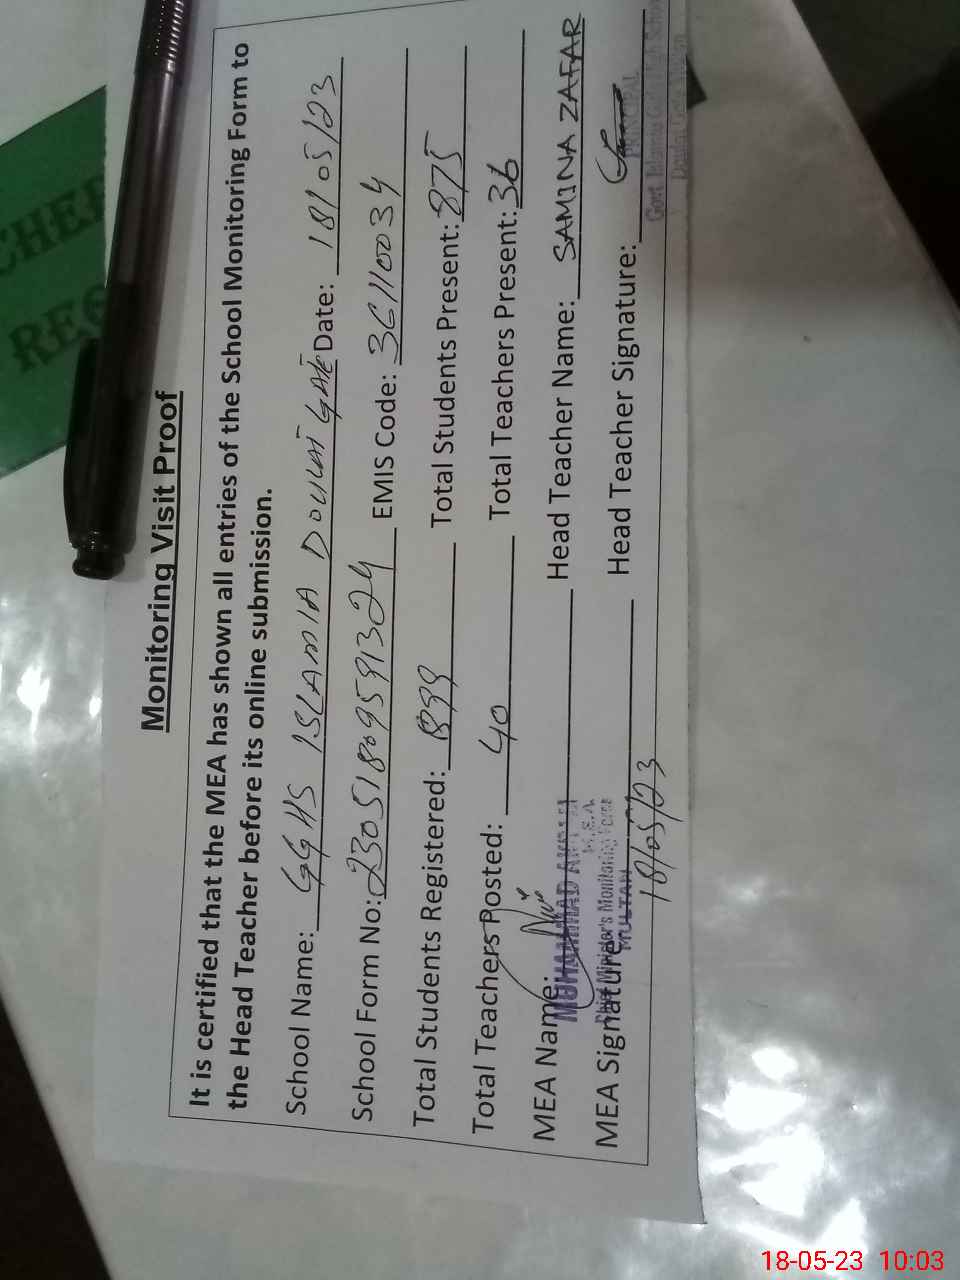 Monitoring Visit Proof
It is certified that the MEA has shown all entries of the School Monitoring Form to
the Head Teacher before its online submission.
School Name: GGHS ISLAMIA DOULAT GATE Date: 18/05/23
School Form No: 23051809591324 EMIS Code: 36110034
Total Students Registered: 899 Total Students Present: 875
Total Teachers Posted: 40 Total Teachers Present: 36
MEA Name: Head Teacher Name: SAMINA ZAFAR
MUHAMMAD
M.E.A
MEA Signature: Head Teacher Signature:
Chief Minister's Monitoring Force
MULTAN
18/05/23
PRINCIPAL
Govt. Islamia Girls High School
Daulat Gate Multan
REG
18-05-23 10:03